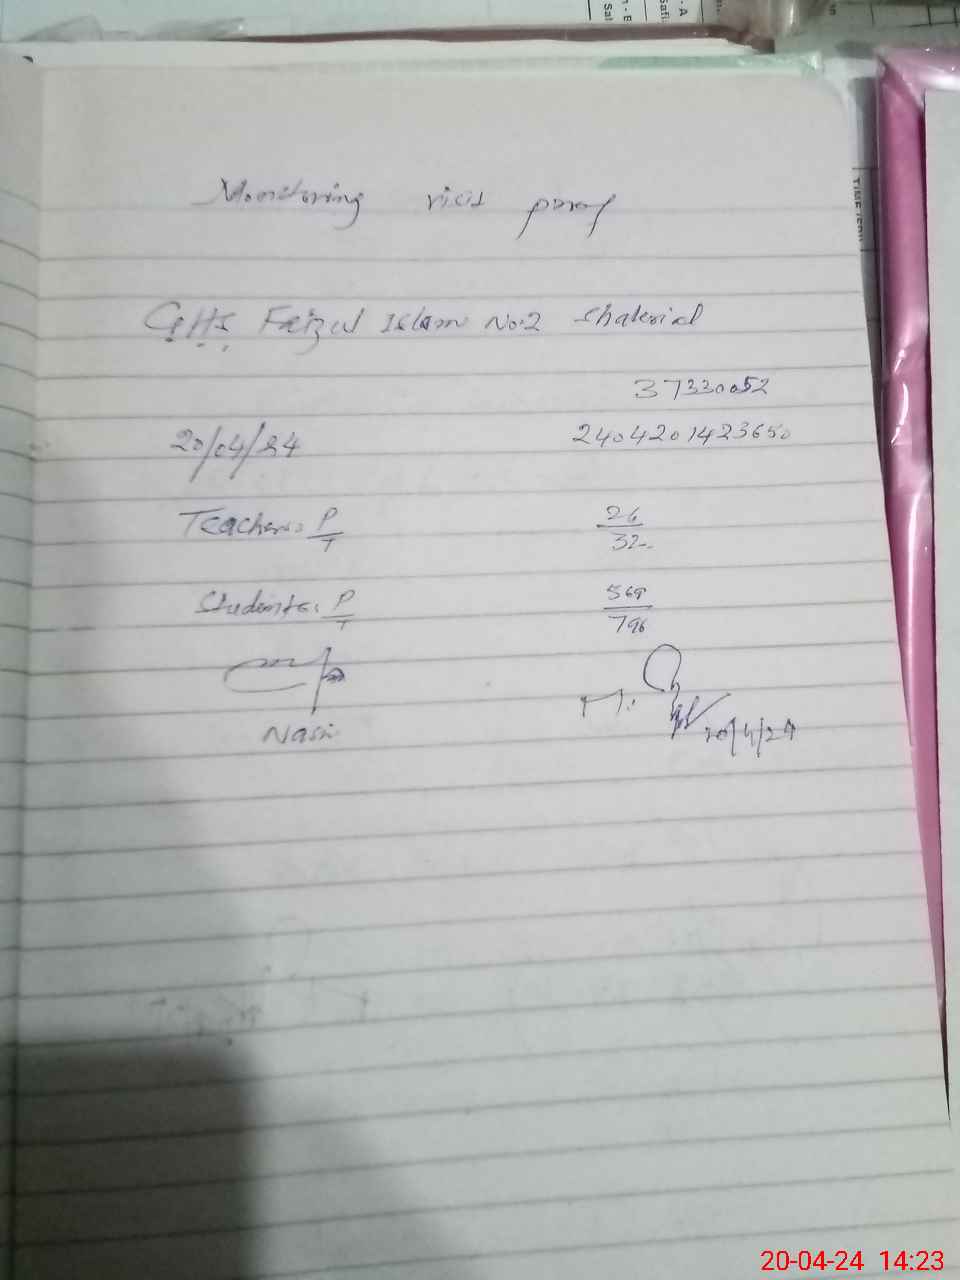 Monitoring visit proof
GHS Faizul Islam No.2 Shakrial
37330052
20/04/24
2404201423650
Teachers: P/T
26/32
Students: P/T
569/796
Nasir
M.
20/4/24
20-04-24 14:23